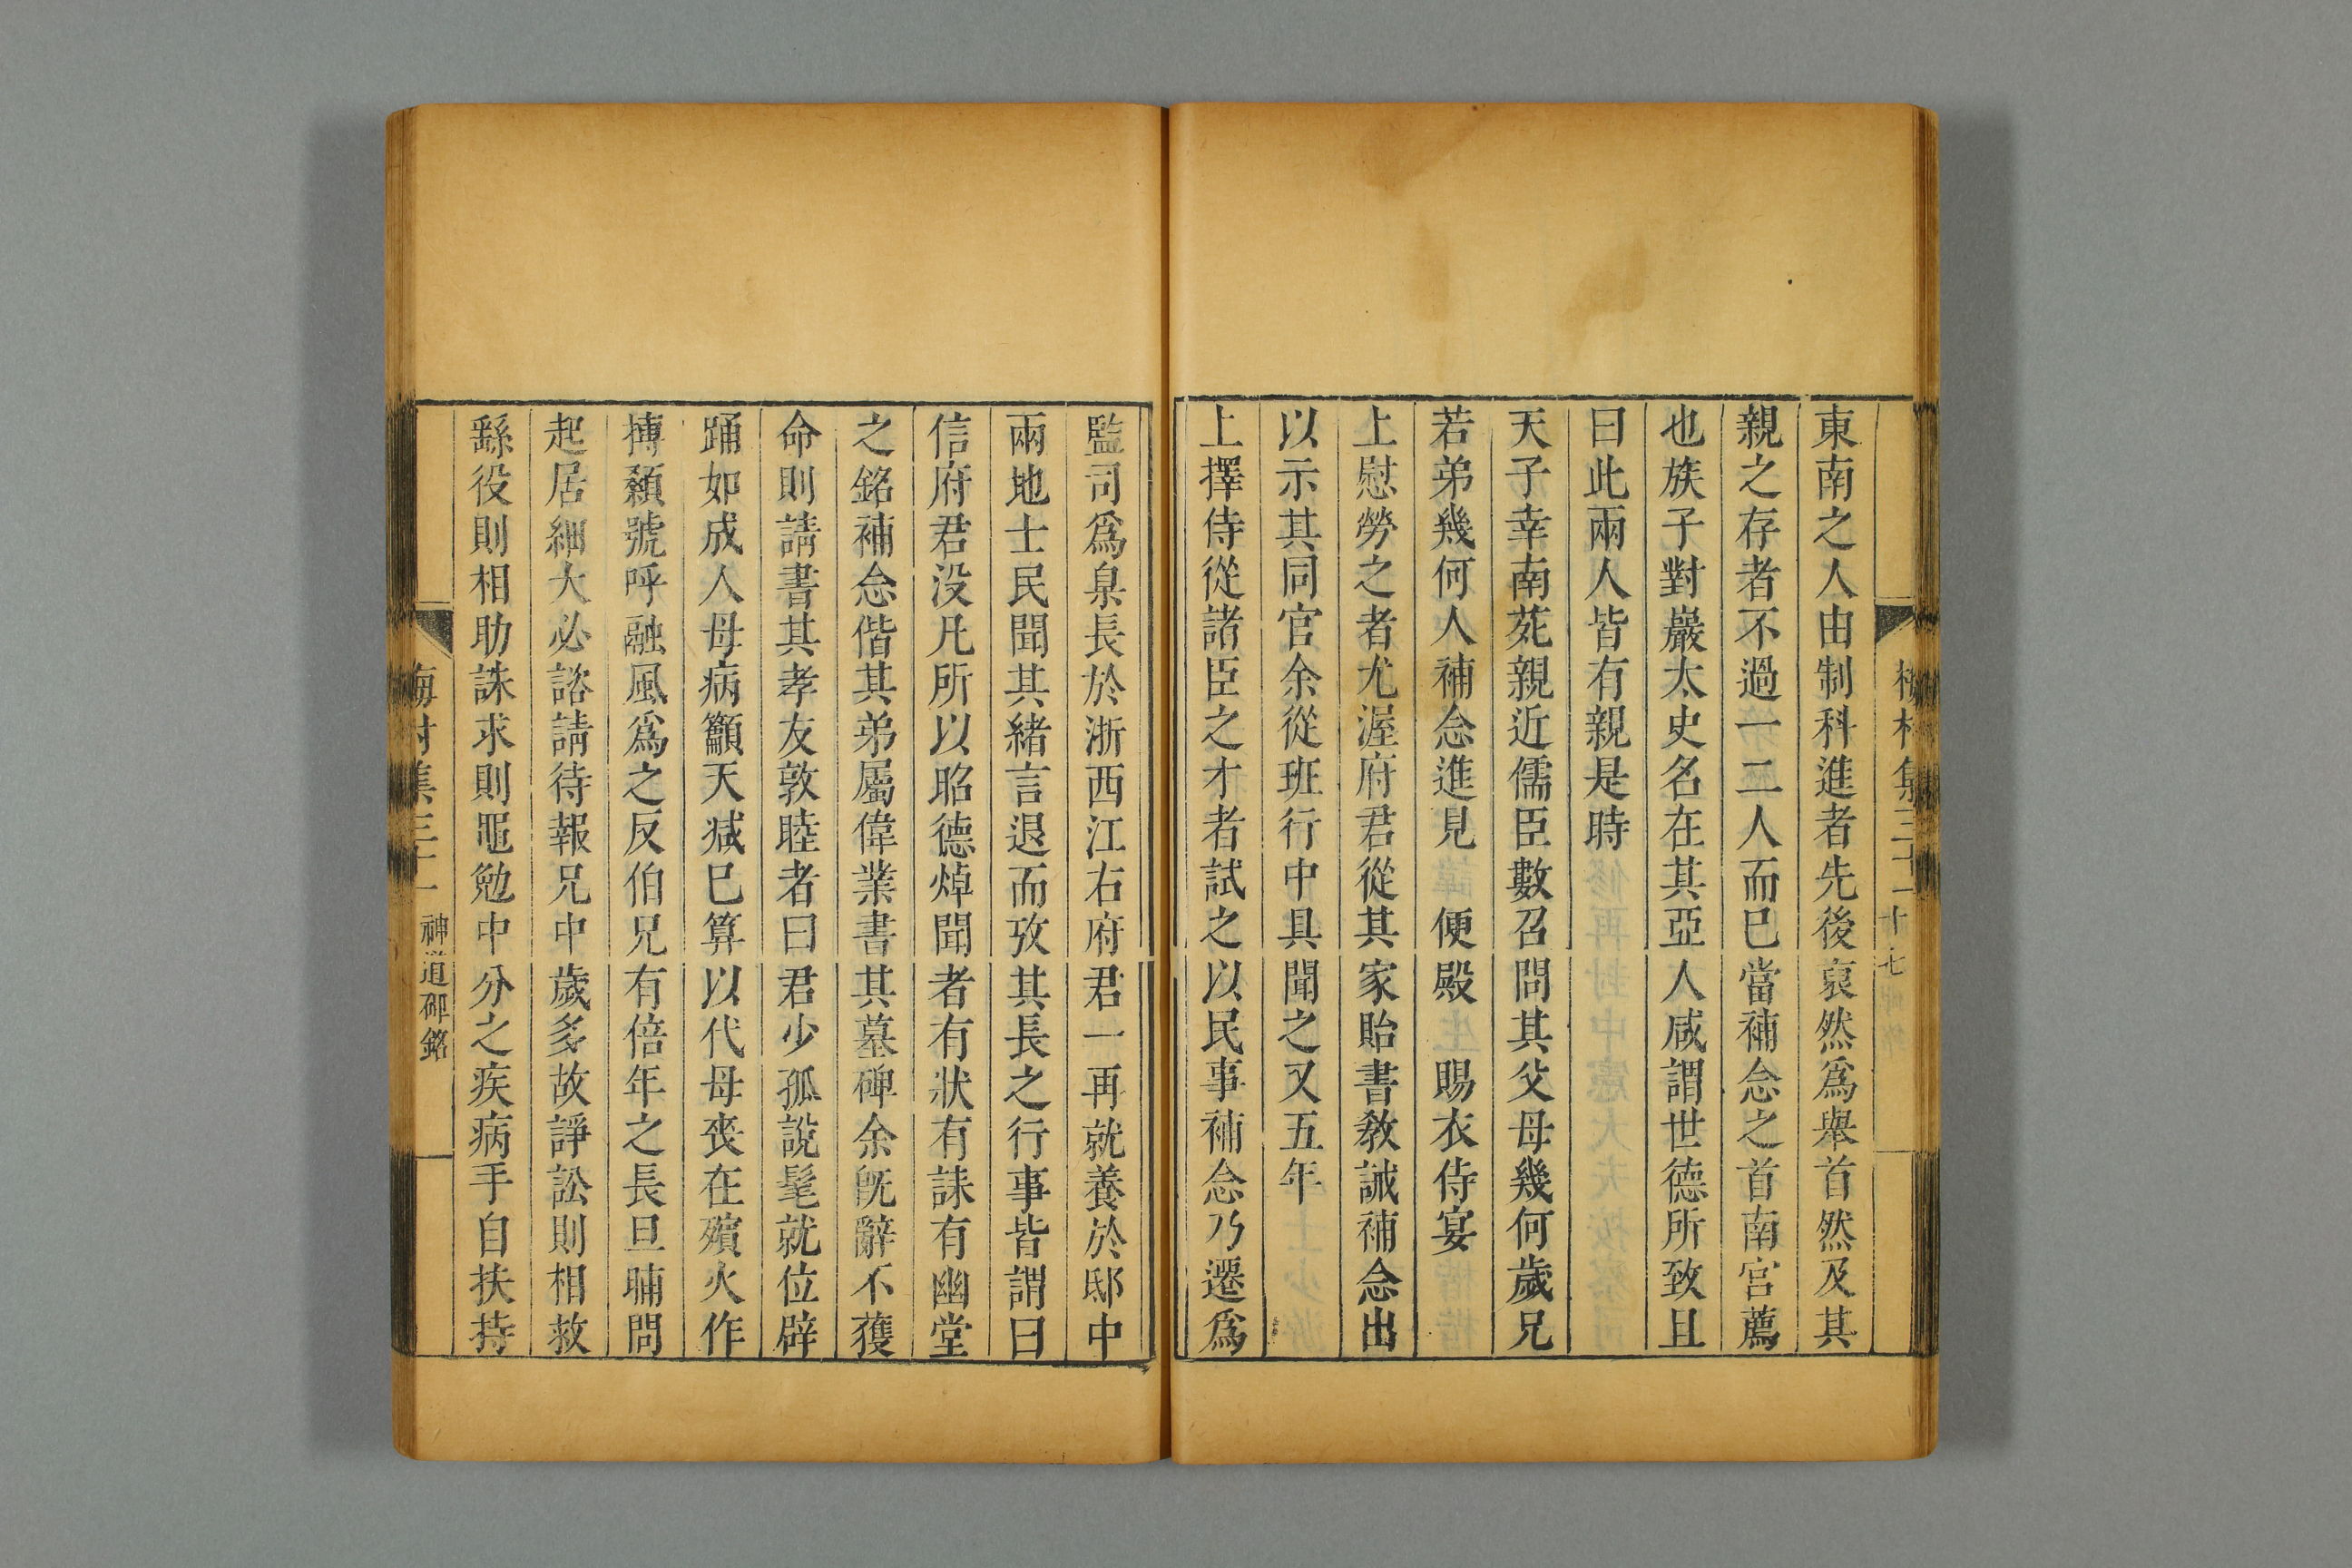 東南之人由制科進者先後裒然爲舉首然及其
親之存者不過一二人而巳當補念之首南宮薦
也族子對巖太史名在其亞人咸謂世德所致且
曰此兩人皆有親是時
天子幸南苑親近儒臣數召問其父母幾何歲兄
若弟幾何人補念進見 便殿 賜衣侍宴
上慰勞之者尤渥府君從其家貽書敎誡補念出
以示其同官余從班行中具聞之又五年
上擇侍從諸臣之才者試之以民事補念乃遷爲
監司爲臬長於浙西江右府君一再就養於邸中
兩地士民聞其緒言退而攷其長之行事皆謂曰
信府君没凡所以昭德焯聞者有狀有誄有幽堂
之銘補念偕其弟屬偉業書其墓碑余旣辭不獲
命則請書其孝友敦睦者曰君少孤說髦就位辟
踊如成人母病籲天減巳算以代母喪在殯火作
搏顙號呼融風爲之反伯兄有倍年之長旦晡問
起居細大必諮請待報兄中歲多故諍訟則相救
繇役則相助誅求則黽勉中分之疾病手自扶持
梅村集三十一 神道碑銘
十七